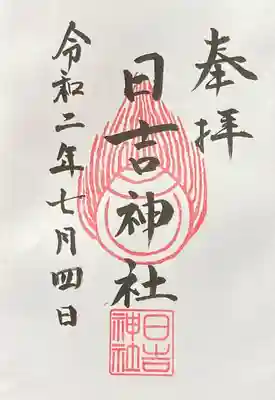 奉拝
日吉神社
日吉
神社
令和二年七月四日